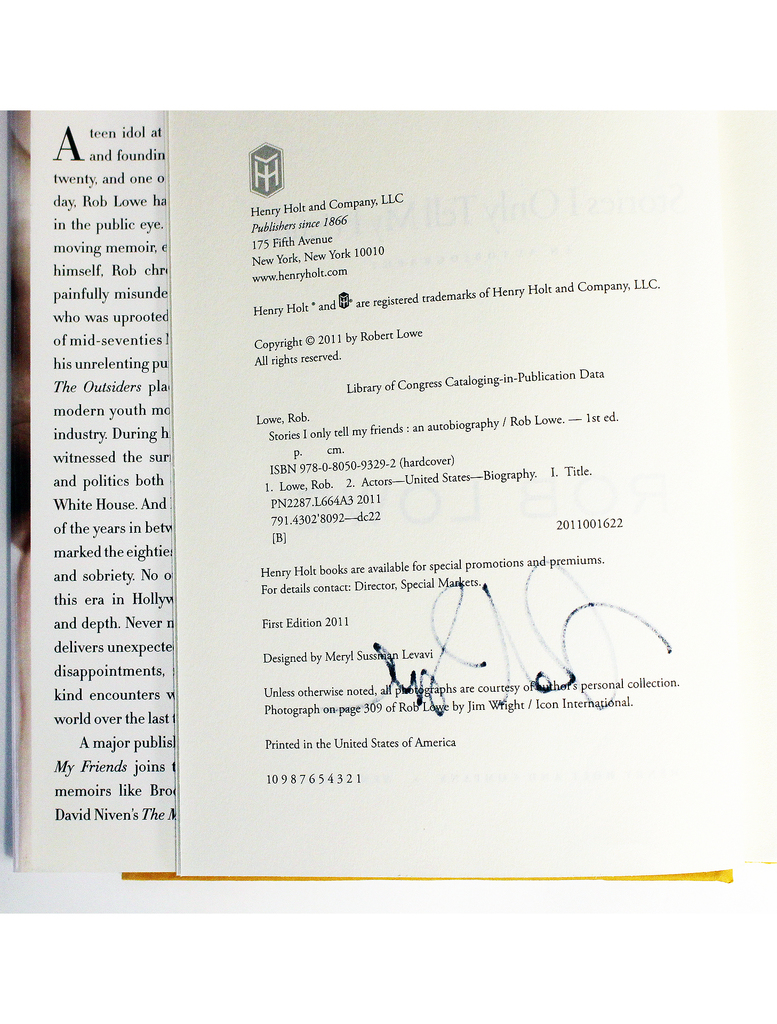 A teen idol at
and foundin
twenty, and one o
day, Rob Lowe ha
in the public eye.
moving memoir, e
himself, Rob chr
painfully misunde
who was uprooted
of mid-seventies
his unrelenting pu
The Outsiders pla
modern youth mo
industry. During h
witnessed the sur
and politics both
White House. And
of the years in betw
marked the eighties
and sobriety. No o
this era in Hollyw
and depth. Never n
delivers unexpecte
disappointments,
kind encounters w
world over the last t
A major publis
My Friends joins t
memoirs like Bro
David Niven's The M
Henry Holt and Company, LLC
Publishers since 1866
175 Fifth Avenue
New York, New York 10010
www.henryholt.com
Henry Holt ® and ® are registered trademarks of Henry Holt and Company, LLC.
Copyright © 2011 by Robert Lowe
All rights reserved.
Library of Congress Cataloging-in-Publication Data
Lowe, Rob.
Stories I only tell my friends : an autobiography / Rob Lowe. — 1st ed.
p. cm.
ISBN 978-0-8050-9329-2 (hardcover)
1. Lowe, Rob. 2. Actors—United States—Biography. I. Title.
PN2287.L664A3 2011
791.4302'8092—dc22
[B] 2011001622
Henry Holt books are available for special promotions and premiums.
For details contact: Director, Special Markets.
First Edition 2011
Designed by Meryl Sussman Levavi
Unless otherwise noted, all photographs are courtesy of author's personal collection.
Photograph on page 309 of Rob Lowe by Jim Wright / Icon International.
Printed in the United States of America
10 9 8 7 6 5 4 3 2 1